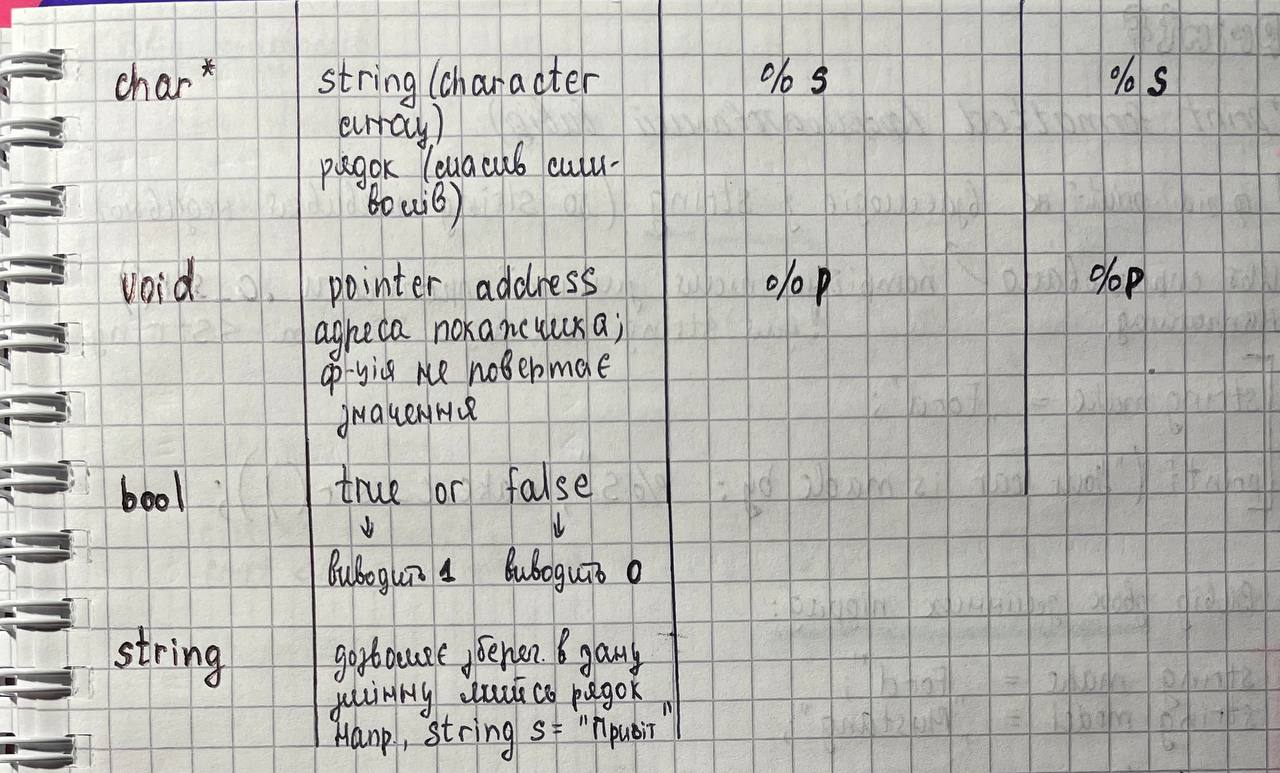 char* string (character %s %s
array)
рядок (масив сим-
волів)
void pointer address %p %p
адреса покажчика;
ф-ція не повертає
значення
bool true or false
↓ ↓
виводить 1 виводить 0
string дозволяє зберег. в дану
змінну якийсь рядок
напр., string s = "Привіт"